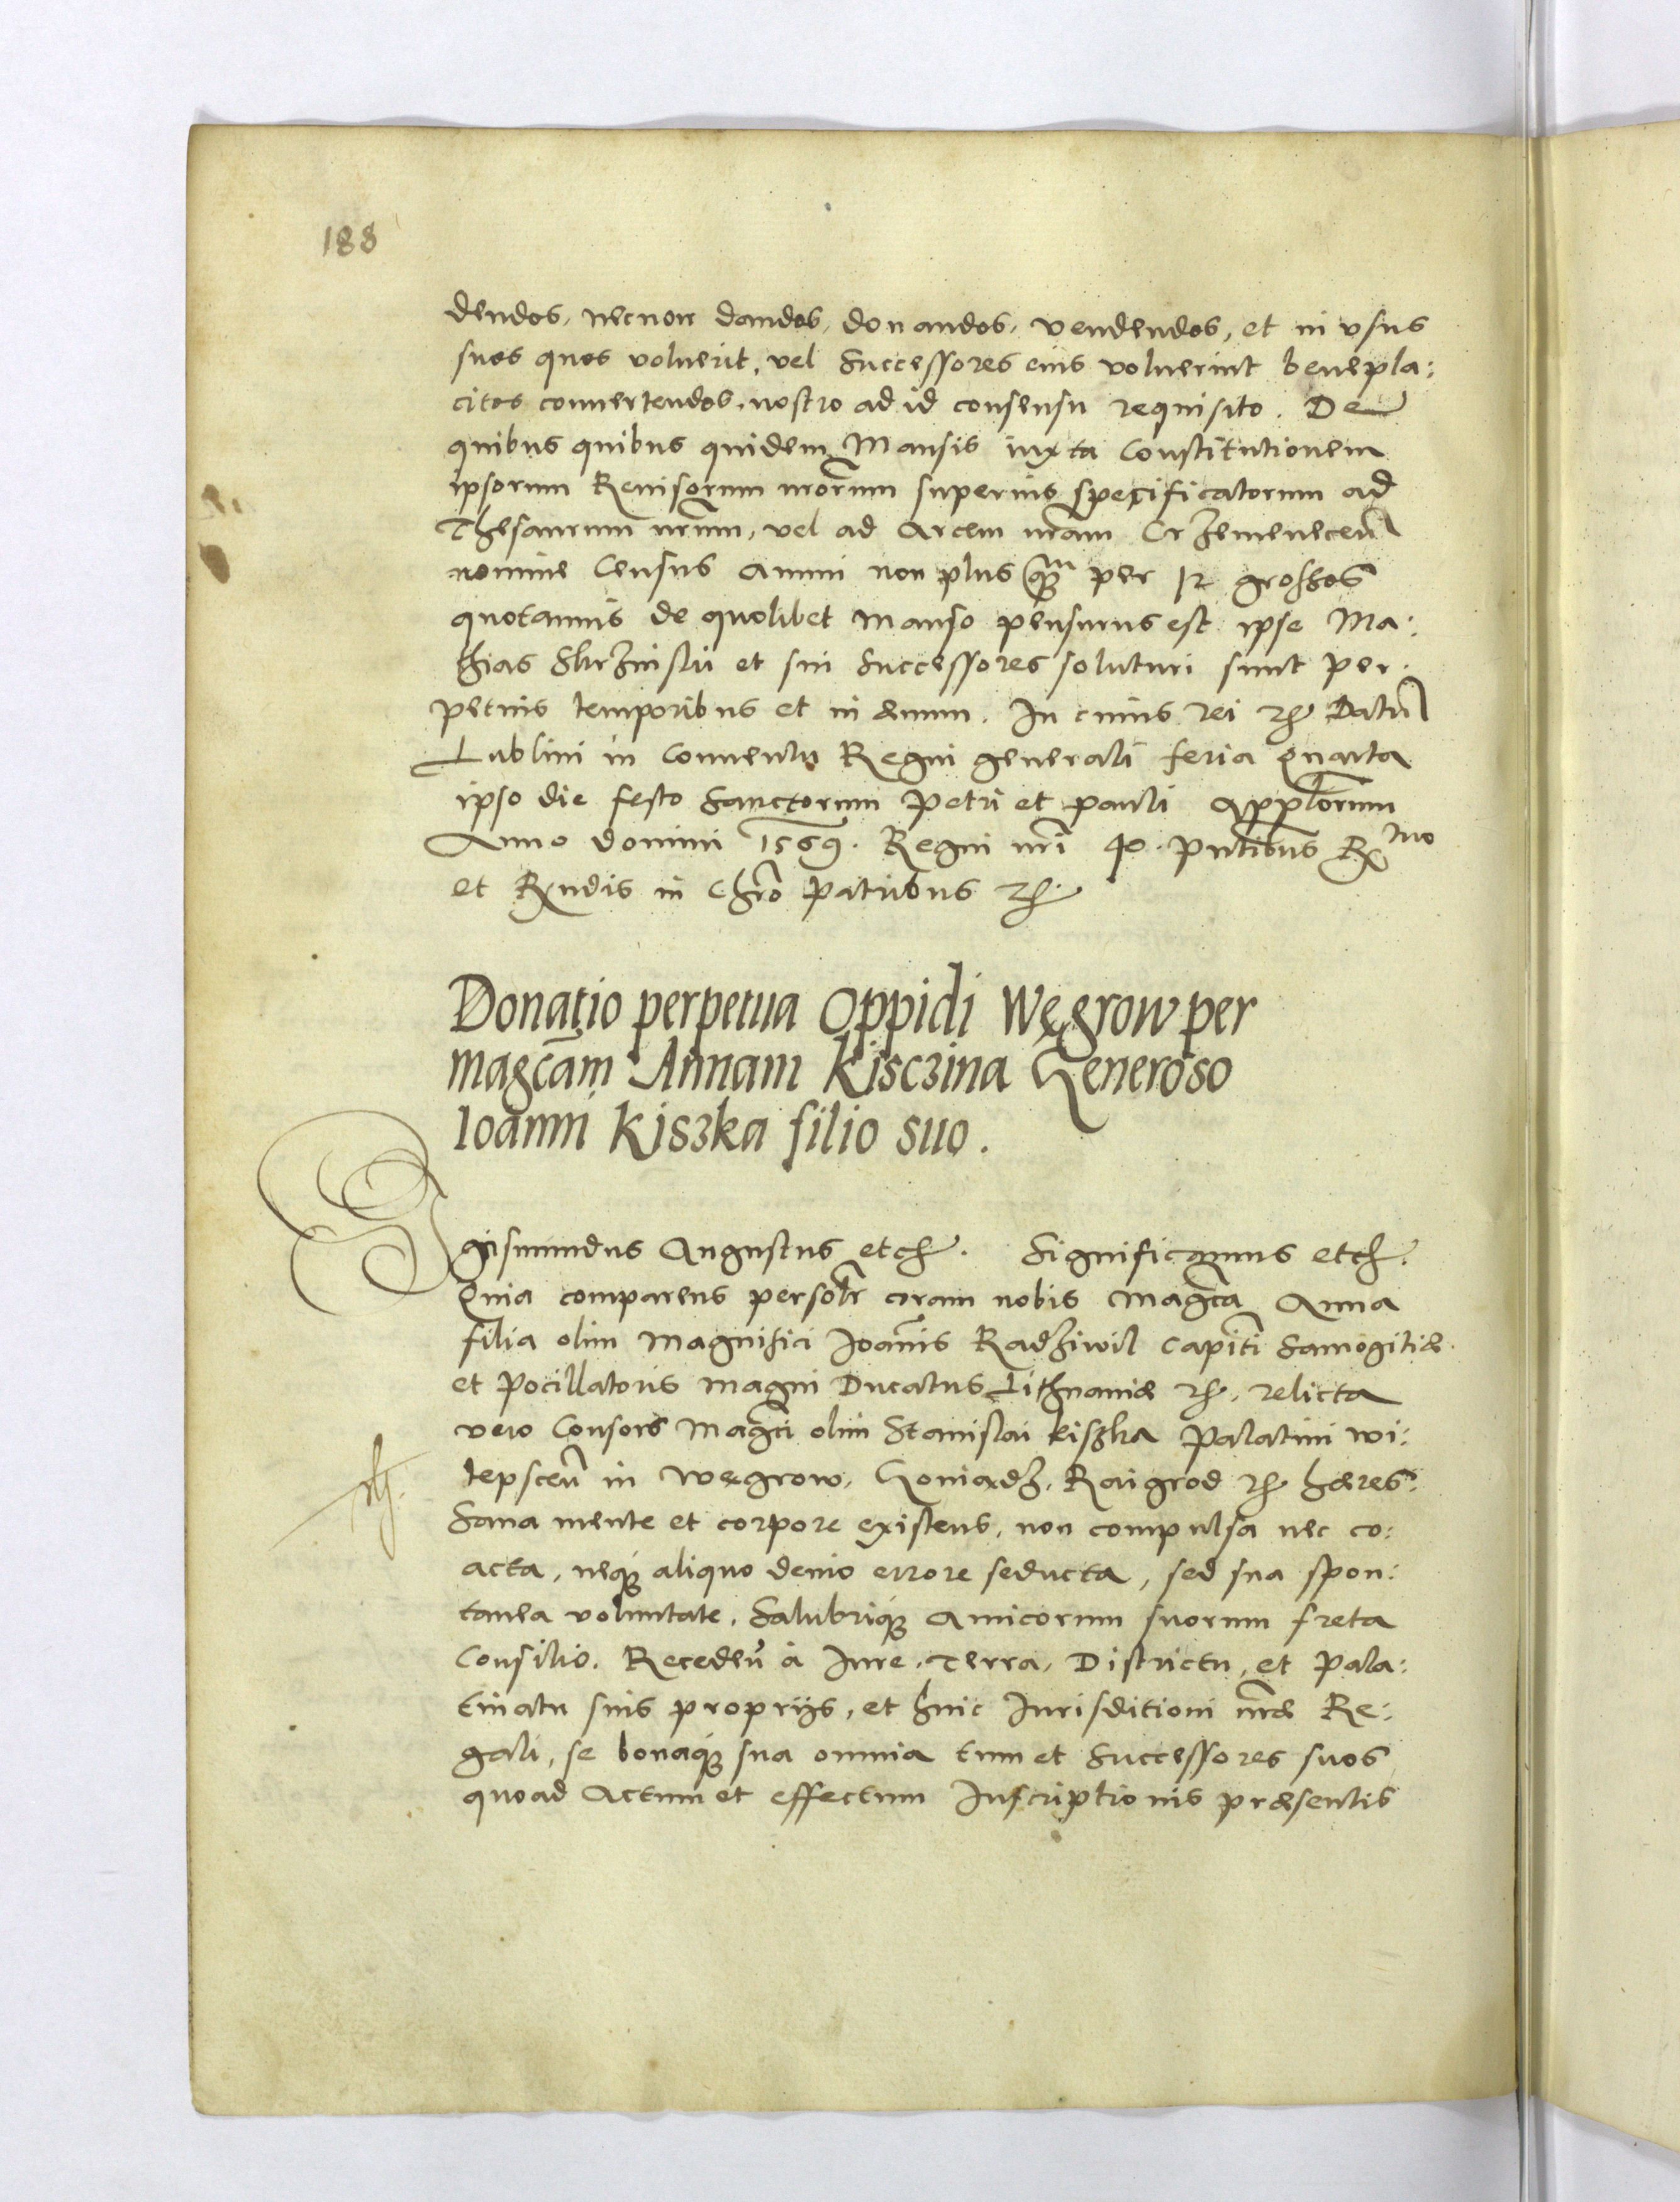 188
dendos, necnon dandos, donandos, vendendos, et in vsus
suos quos voluerit, vel Successores eius voluerint benepla:
citos conuertendos, nostro ad id consensu requisito. De
quibus quibus quidem Mansis iuxta Constitutionem
ipsorum Reuisorum nrōrum superius specificatorum ad
Thesaurum nrūm, vel ad Arcem nrām Crzemenecen̄
nomine Census annui non plus q̄m per 12 grossos
quotannis de quolibet manso pensurus est ipse Ma:
thias Skrzinskii et sui Successores soluturi sunt per:
petuis temporibus et in æuum. In cuius rei etc Datum̄
Lublini in Conuentu Regni generali feria Quarta
ipso die festo Sanctorum Petri et Pauli App̄lorum
Anno domini 1569. Regni nrī 40. Pn̄tibus R̄mo
et Rn̄dis in Chrō Patribus etc.
Donatio perpetua Oppidi Węgrow per
magc̄am Annam Kisczina Generoso
Ioanni Kiszka filio suo.
Sigismundus Augustus etc. Significamus etc.
Quia comparens persolr̄ coram nobis Magc̄a Anna
filia olim Magnifici Joan̄is Radziwil Capit̄i Samogitiæ
et Pocillatoris magni Ducatus Lithuaniæ etc. relicta
vero Consors Magc̄i olim Stanislai Kiszka Palatini Wi:
tepscen̄ in Węgrow, Koniądz, Raigrod etc hæres.
Sana mente et corpore existens, non compulsa nec co:
acta, neq; aliquo deuio errore seducta, sed sua spon:
tanea voluntate, Salubriq; Amicorum suorum freta
Consilio. Receden̄ à Iure, Terra, Districtu, et Pala:
tinatu suis proprijs, et huic Iurisditioni nrǣ Re:
gali, se bonaq; sua omnia tum et Successores suos
quoad Actum et effectum Inscriptionis præsentis